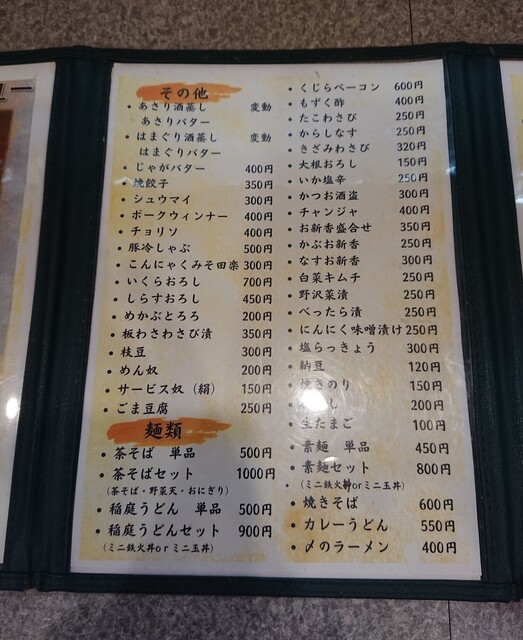 その他
・あさり酒蒸し 変動
あさりバター
・はまぐり酒蒸し 変動
はまぐりバター
・じゃがバター 400円
・焼餃子 350円
・シュウマイ 300円
・ポークウィンナー 400円
・チョリソ 400円
・豚冷しゃぶ 500円
・こんにゃくみそ田楽 300円
・いくらおろし 700円
・しらすおろし 450円
・めかぶとろろ 200円
・板わさわさび漬 350円
・枝豆 300円
・めん奴 200円
・サービス奴(絹) 150円
・ごま豆腐 250円
麺類
・茶そば 単品 500円
・茶そばセット 1000円
(茶そば・野菜天・おにぎり)
・稲庭うどん 単品 500円
・稲庭うどんセット 900円
(ミニ鉄火丼orミニ玉丼)
・くじらベーコン 600円
・もずく酢 400円
・たこわさび 250円
・からしなす 250円
・きざみわさび 320円
・大根おろし 150円
・いか塩辛 250円
・かつお酒盗 300円
・チャンジャ 400円
・お新香盛合せ 350円
・かぶお新香 250円
・なすお新香 300円
・白菜キムチ 250円
・野沢菜漬 250円
・べったら漬 250円
・にんにく味噌漬け 250円
・塩らっきょう 300円
・納豆 120円
・焼きのり 150円
し 200円
・生たまご 100円
・素麺 単品 450円
・素麺セット 800円
・(ミニ鉄火丼orミニ玉丼)
・焼きそば 600円
・カレーうどん 550円
・〆のラーメン 400円